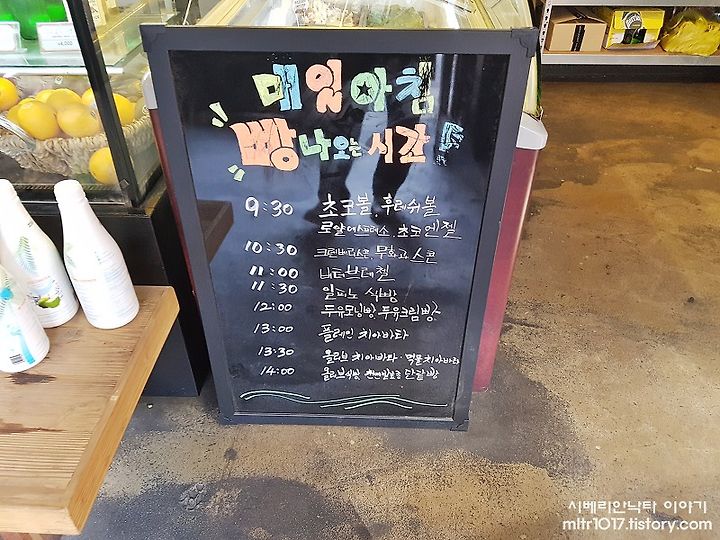 매일 아침
빵 나오는 시간!
9:30 초코볼, 후레쉬볼
로얄에스프레소, 초코엔젤
10:30 크렌베리스콘, 무화과 스콘
11:00 버터브레첼
11:30 일피노 식빵
12:00 두유모닝빵, 두유크림빵
13:00 플레인 치아바타
13:30 올리브 치아바타 · 먹물치아바타
14:00 올리브식빵 단팥빵
시베리안낙타 이야기
mltr1017.tistory.com